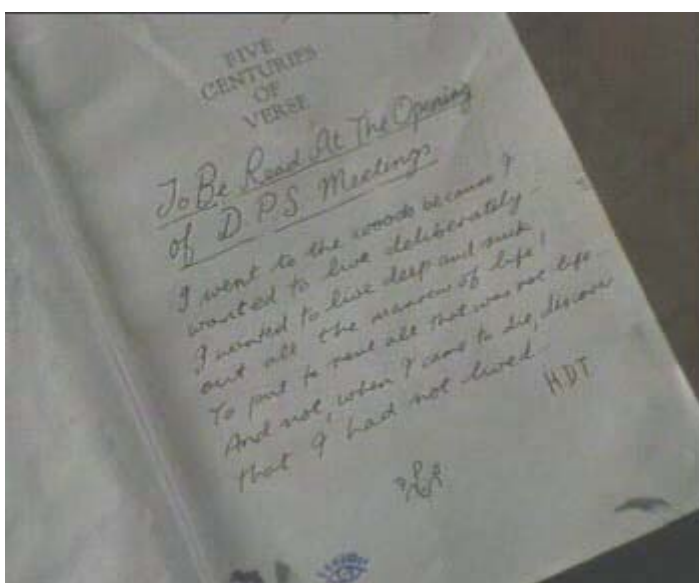 FIVE
CENTURIES
OF
VERSE
To Be Read At The Opening
of D P S Meetings
I went to the woods because I
wanted to live deliberately -
I wanted to live deep and suck
out all the marrow of life!
To put to rout all that was not life -
And not, when I came to die, discover
that I had not lived -
HDT